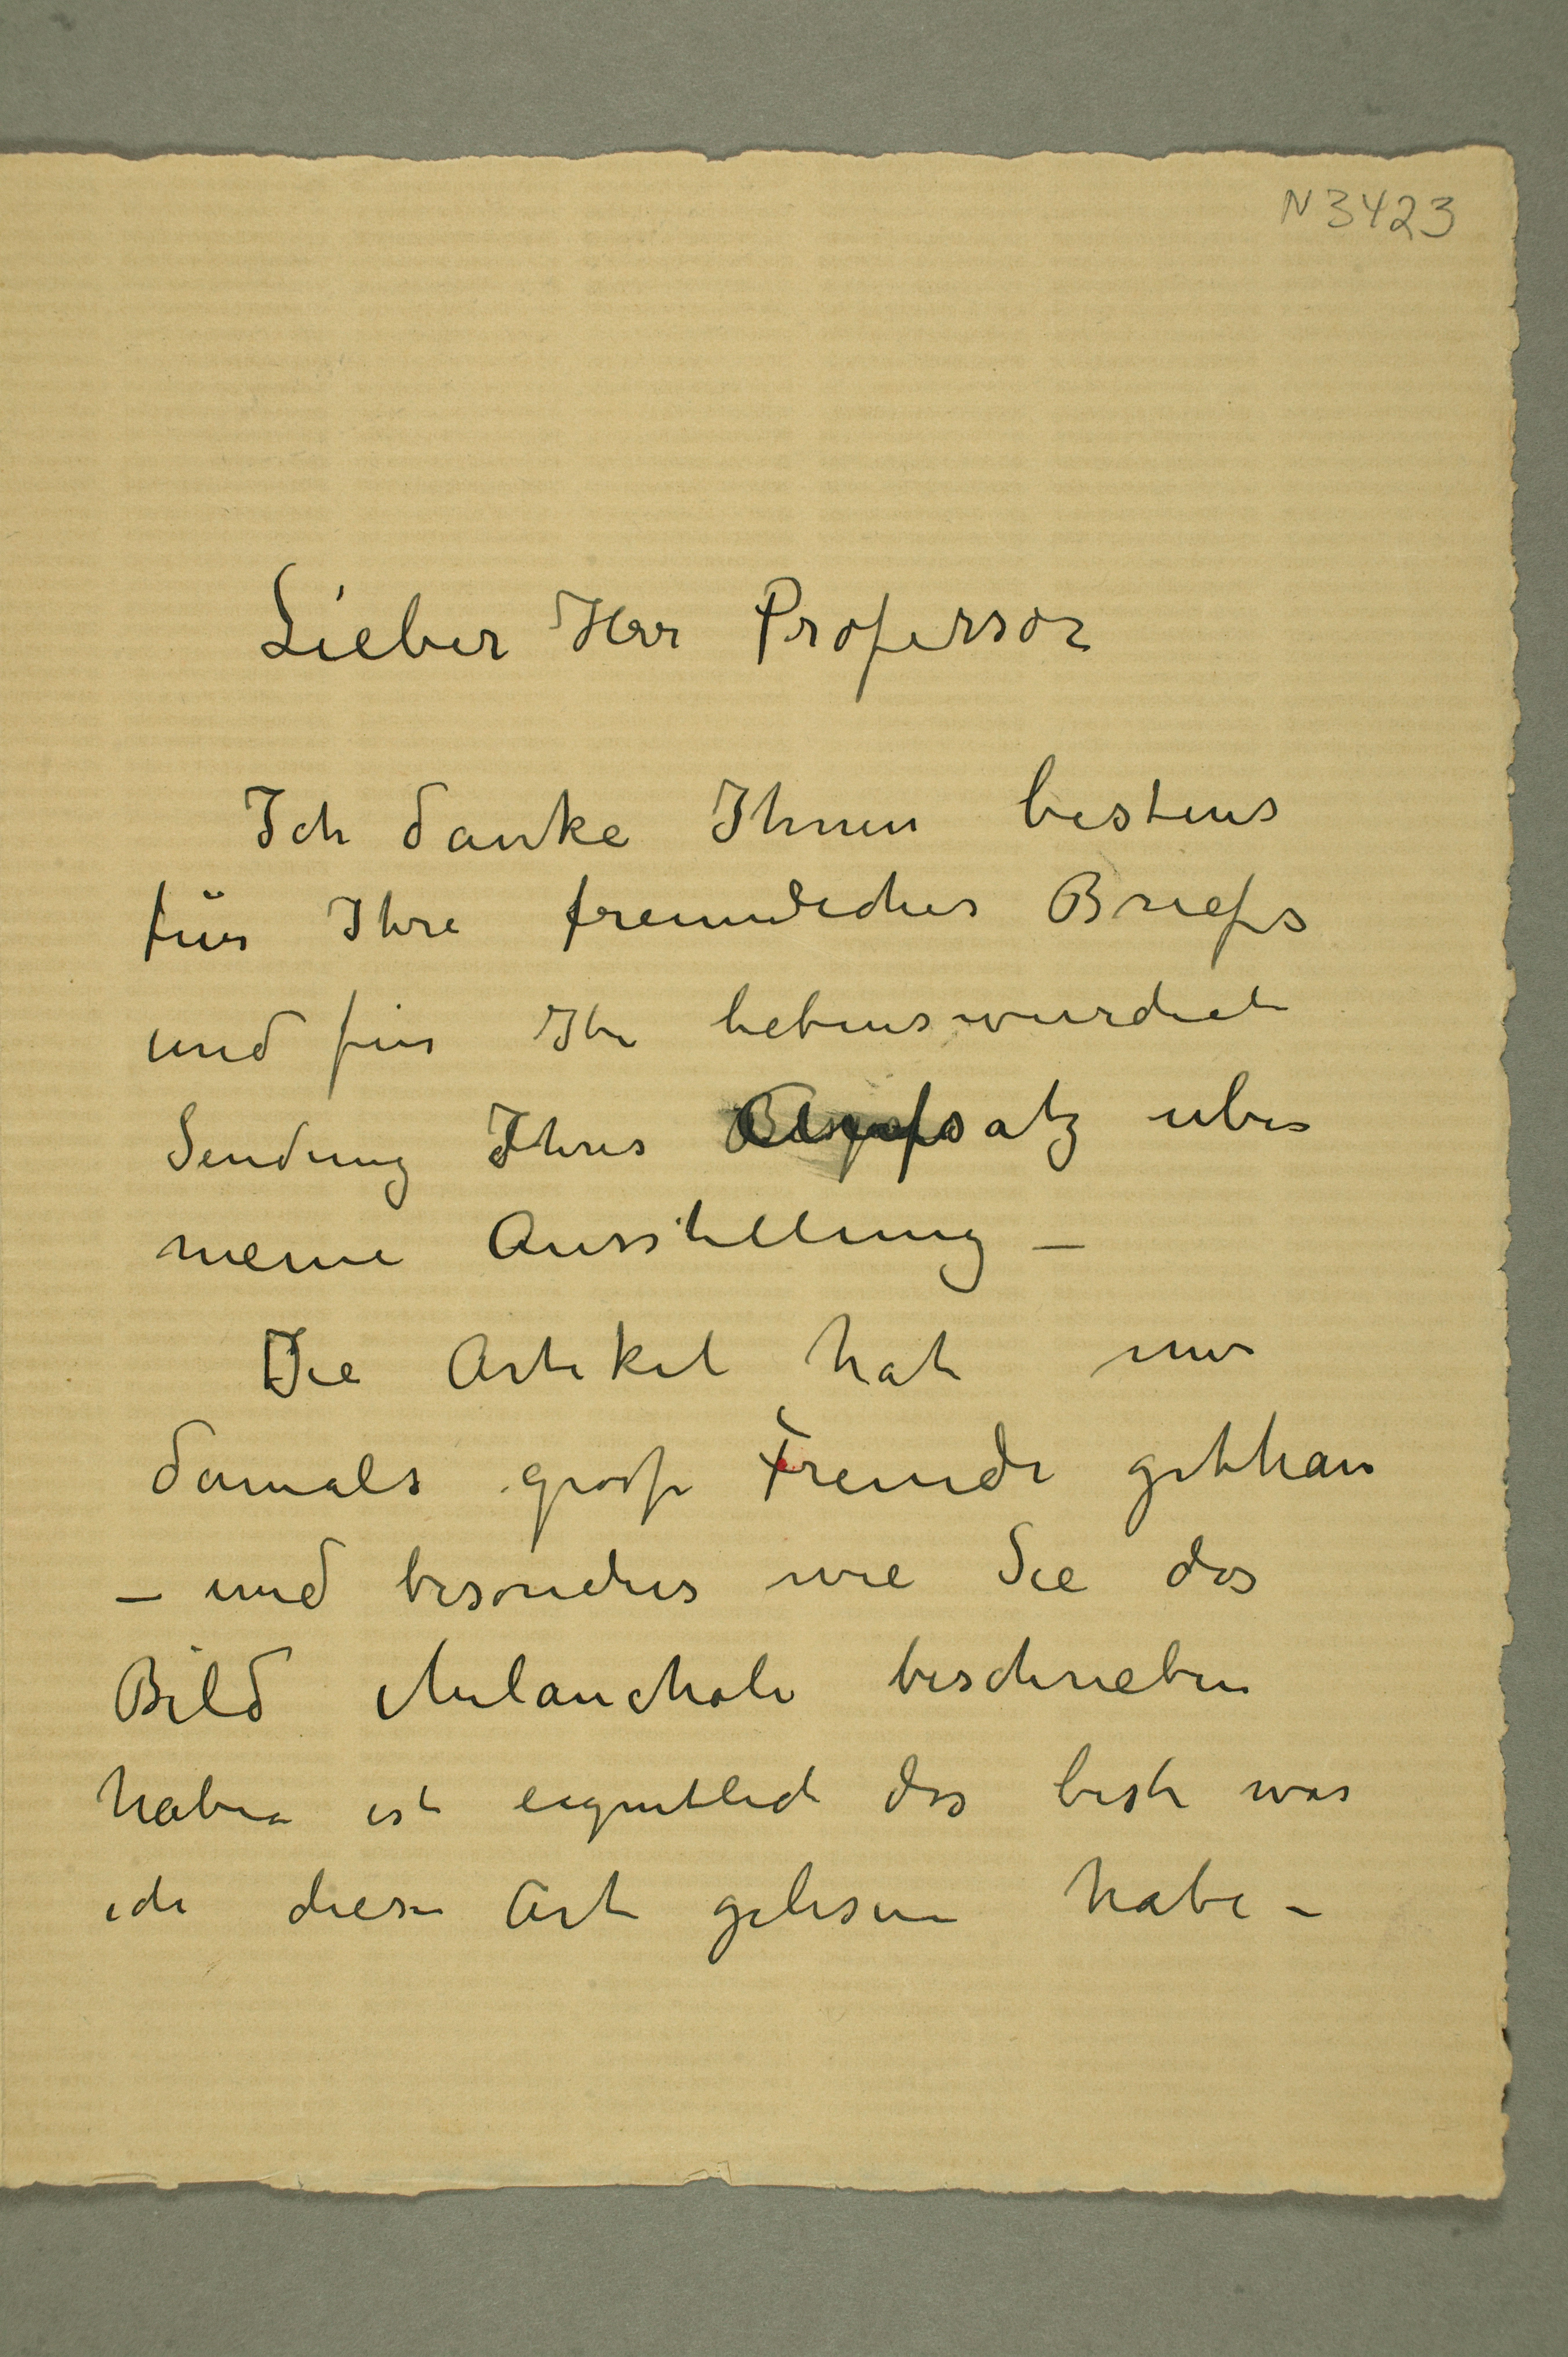 N 3423
Lieber Herr Professor
Ich danke Ihnen bestens
für Ihre freundliches Briefs
und für Ihr liebenswurdiet
Sendung Ihres Aufsatz uber
meine Ausstellung –
Die Artikel hat mir
damals grosse Freude gethan
– und besonders wie Sie das
Bild Melancholi beschrieben
haben ist eigentlich das beste was
ich diese Art gelesen habe –